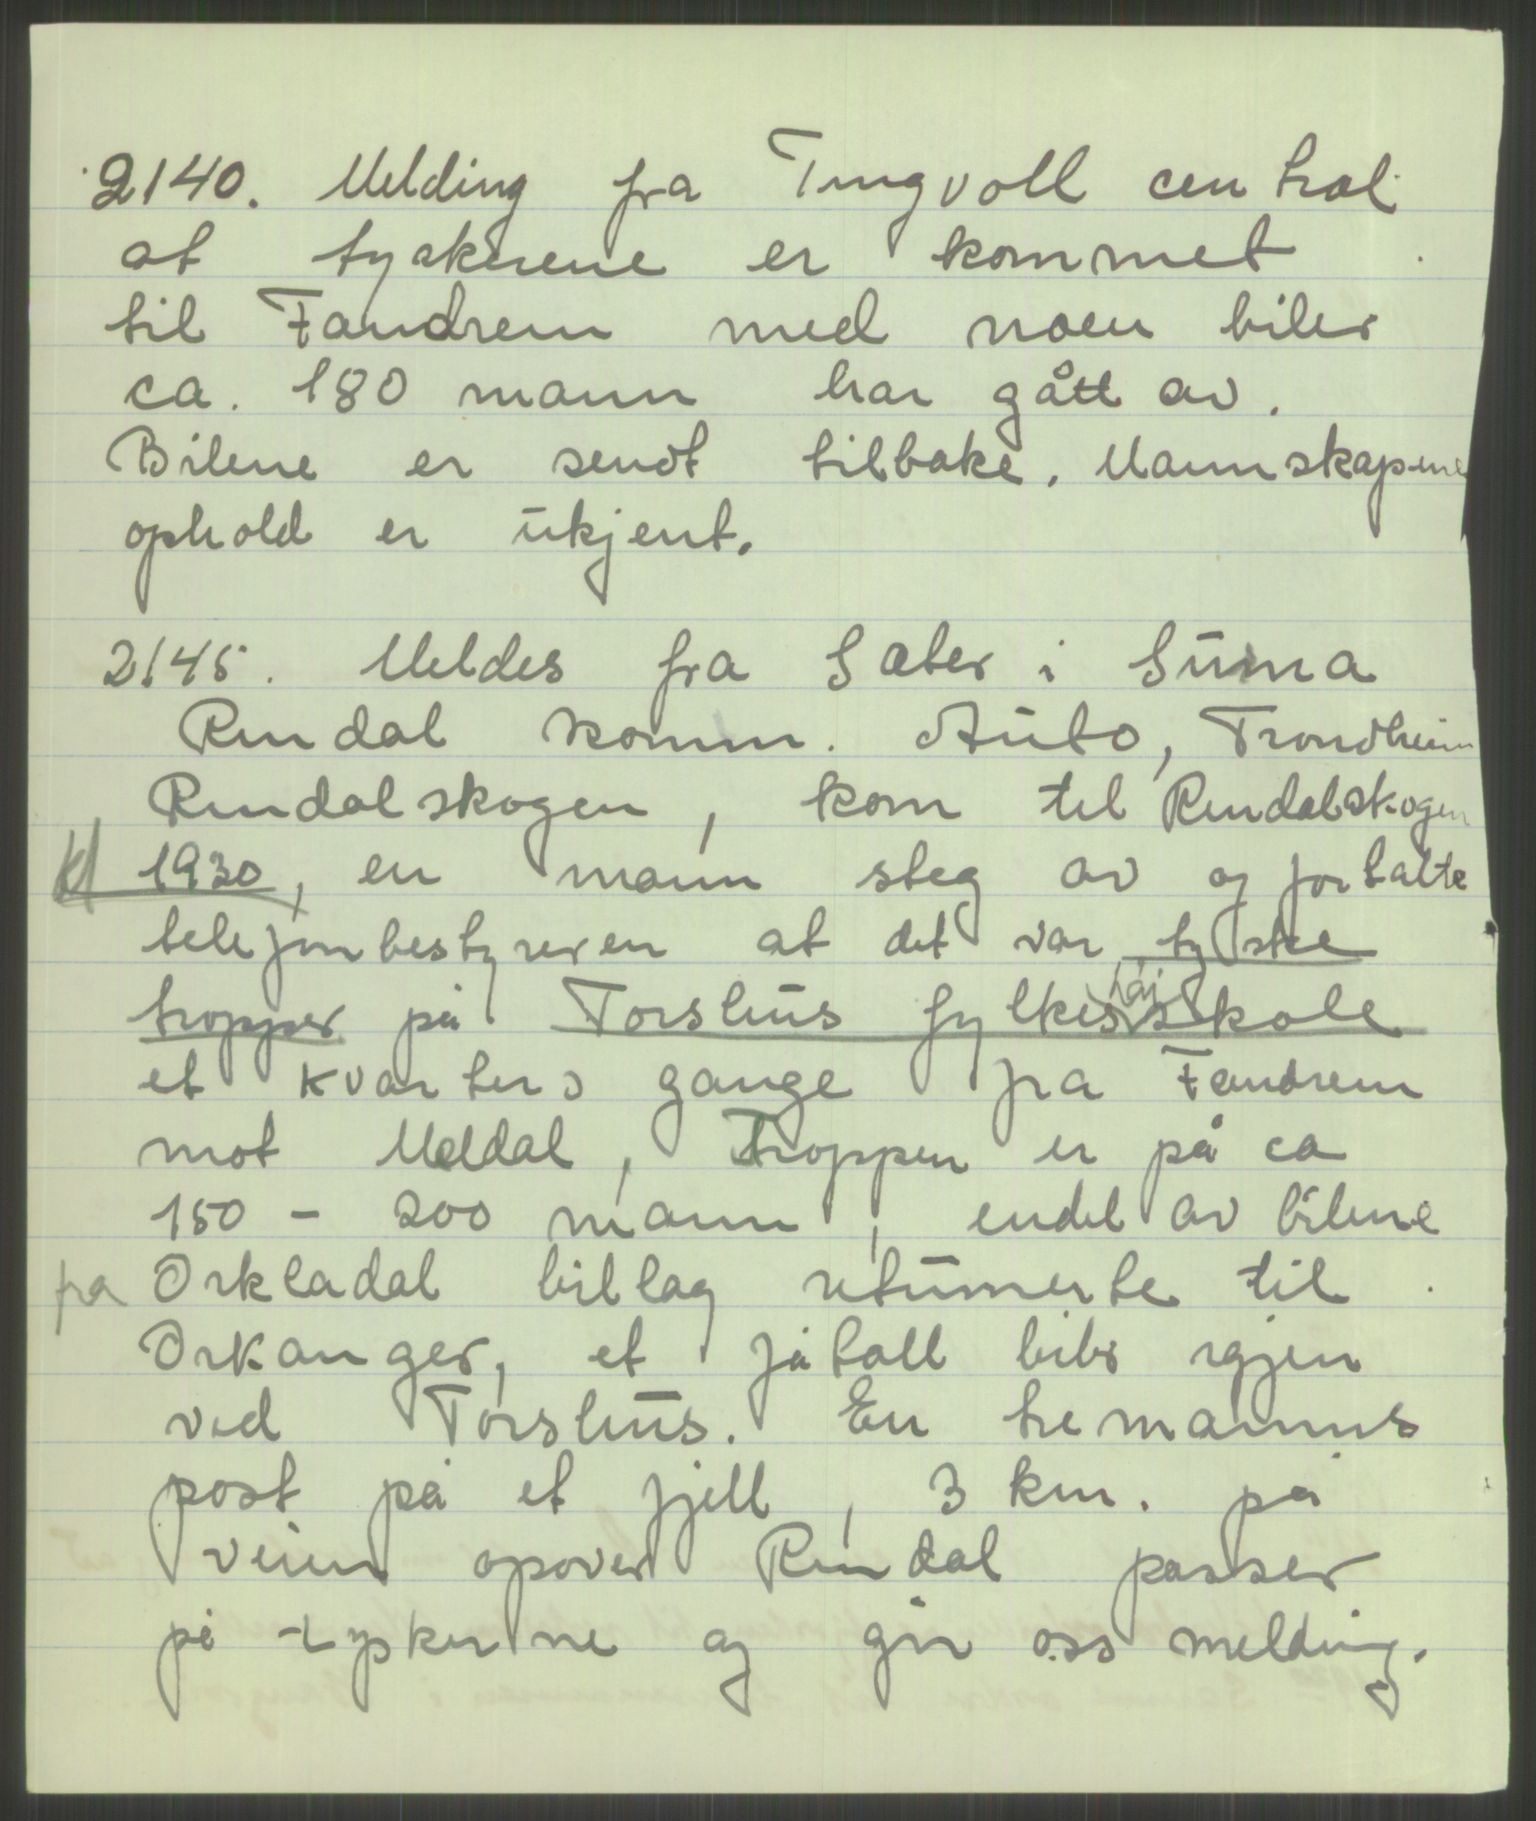 2140. Melding fra Tingvoll central
at tyskerene er kommet
til Fandrem med noen biler
ca. 180 mann har gått av.
Bilene er sendt tilbake. Mannskapene
ophold er ukjent.
2145. Meldes fra Sæter i Surna
Rindal komm. Auto, Trondheim
Rindalskogen, kom til Rindalskogen
kl 1930, en mann steg av og fortalte
telefonbestyreren at det var tyske
tropper på Torshus fylkes høiskole
et kvarters gange fra Fandrem
mot Meldal, Troppen er på ca
150 - 200 mann, endel av bilene
fra Orkladal billag returnerte til
Orkanger, et fåtall biler igjen
ved Torshus. En tremanns
post på et fjell, 3 km. på
veien opover Rindal passer
på tyskerne og gir oss melding.